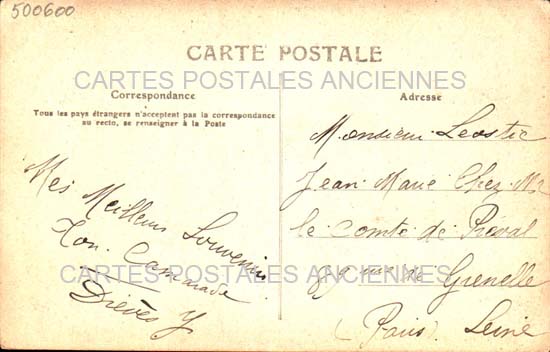 500600
CARTE POSTALE
CARTES POSTALES ANCIENNES
Correspondance
Tous les pays étrangers n'acceptent pas la correspondance
au recto, se renseigner à la Poste
Mes Meilleurs Souvenirs
Ton Camarade
Drévès Y
Adresse
Monsieur Leostic
Jean Marie Chez Mr
le Comte de Préval
rue de Grenelle
(Paris) Seine
CARTES POSTALES ANCIENNES